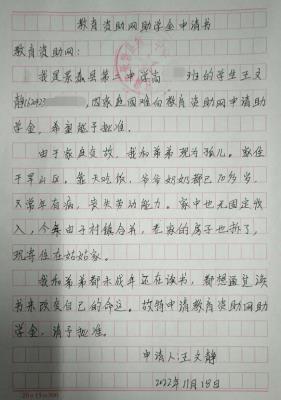 教育资助网助学金申请书
教育资助网:
我是景泰县第二中学高 班的学生王文
静(62042 ,因家庭困难向教育资助网申请助
学金,希望能予批准。
由于家庭变故,我和弟弟现为孤儿。家住
干旱山区。靠天吃饭,爷爷奶奶都已70多岁,
又常年有病,丧失劳动能力。家中也无固定收
入,今年由于村镇合并,老家的房子也拆了,
现寄住在姑姑家。
我和弟弟都未成年还在读书,都想通过读
书来改变自己的命运。故特申请教育资助网助
学金,请予批准。
申请人:王文静
2022年11月18日